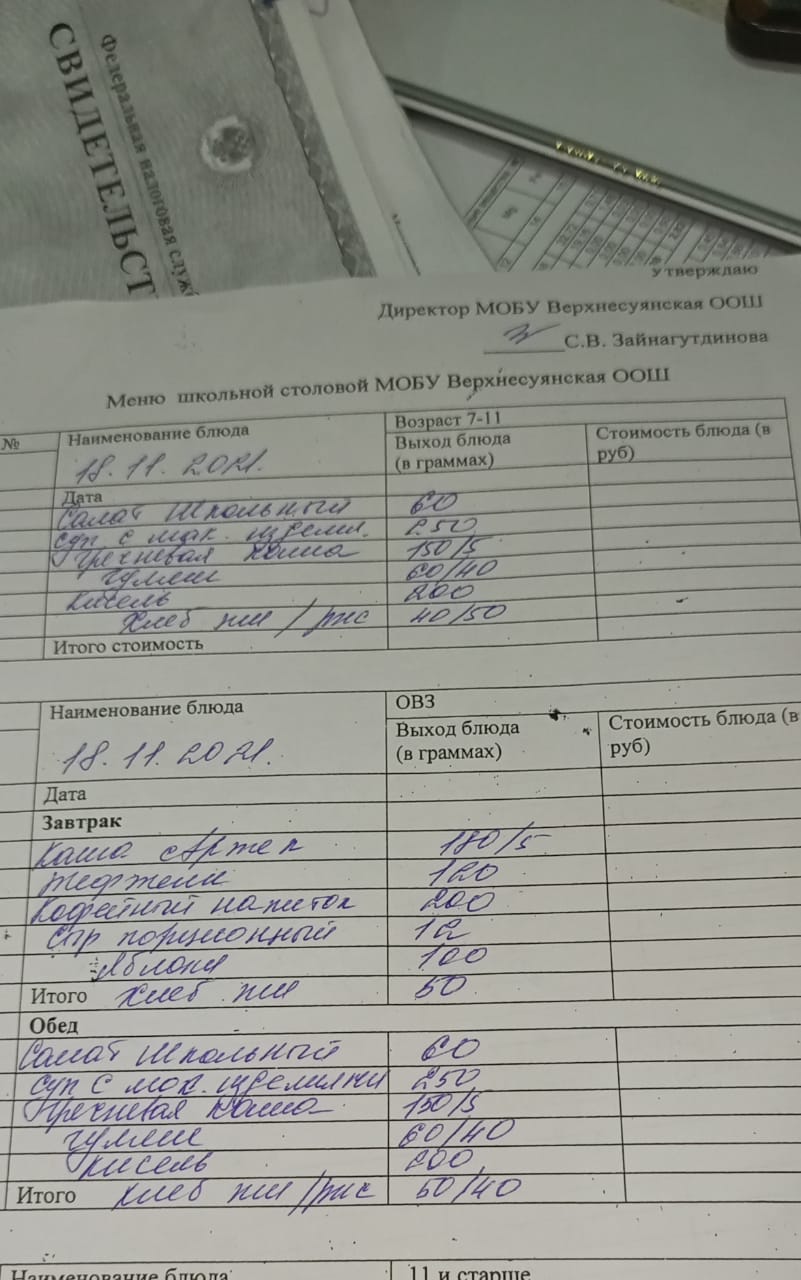 Федеральная налоговая служ
СВИДЕТЕЛЬСТ
Утверждаю
Директор МОБУ Верхнесуянская ООШ
С.В. Зайнагутдинова
Меню школьной столовой МОБУ Верхнесуянская ООШ
№ Наименование блюда Возраст 7-11
18.11.2021. Выход блюда (в граммах) Стоимость блюда (в руб)
Дата
Салат Школьный 60
Суп с мак. издели. 250
Гречневая каша 150/5
гуляш 60/40
Кисель 200
Хлеб пш/рж 40/50
Итого стоимость
Наименование блюда ОВЗ
18.11.2021. Выход блюда (в граммах) Стоимость блюда (в руб)
Дата
Завтрак
Каша Артек 180/5
120
Кофейный напиток 200
Сыр порционный 12
Яблоки 100
Итого Хлеб пш 50
Обед
Салат Школьный 60
Суп с мак. изделиями 250
Гречневая каша 150/5
гуляш 60/40
Кисель 200
Итого Хлеб пш/рж 50/40
Наименование блюда 11 и старше